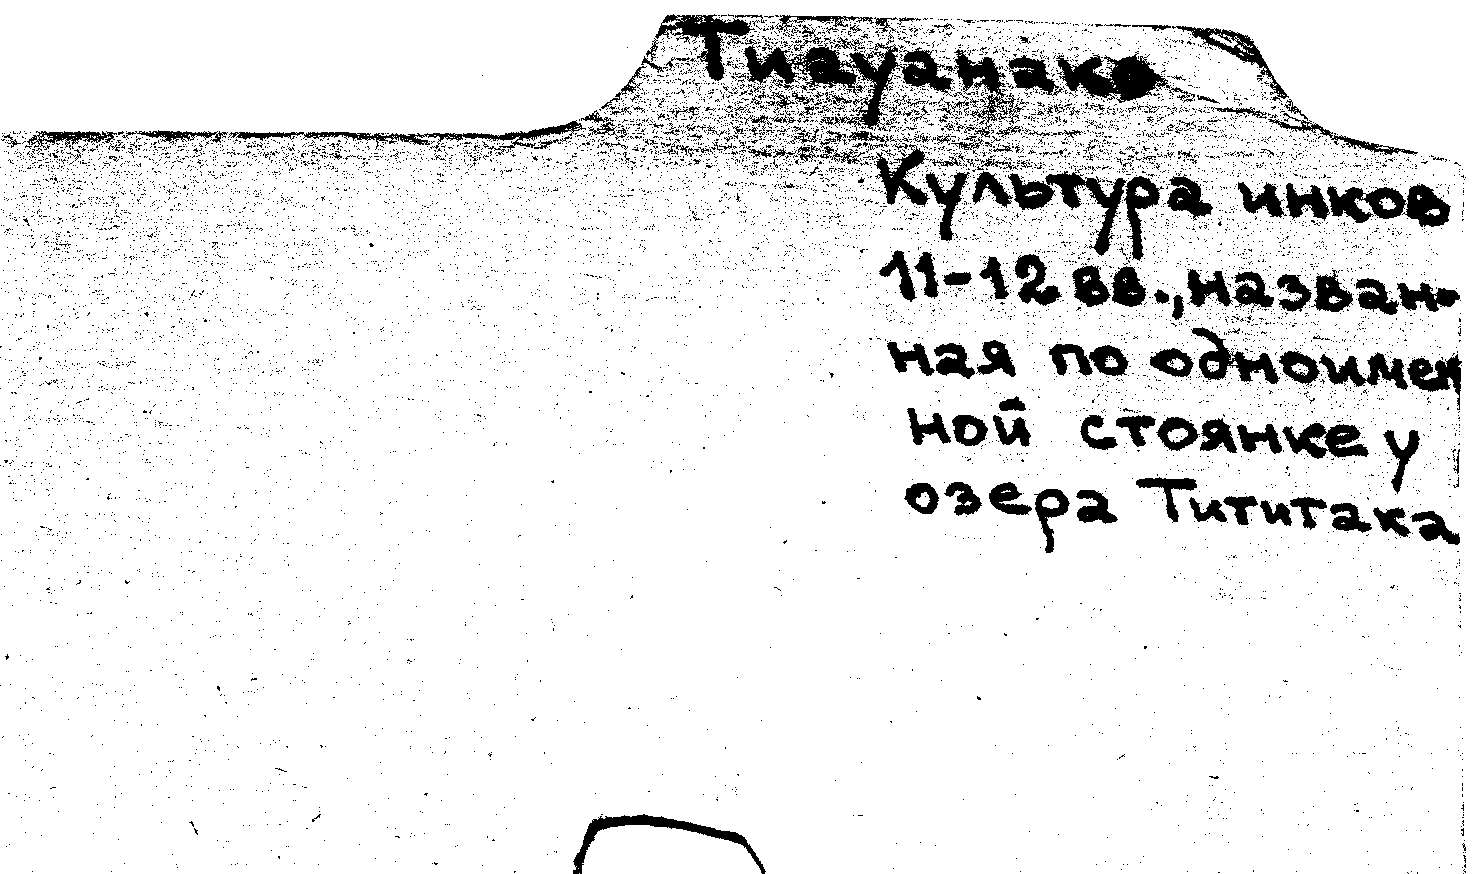 Тиауанако
Культура инков
11-12 вв., назван-
ная по одноимен
ной стоянке у
озера Тититака